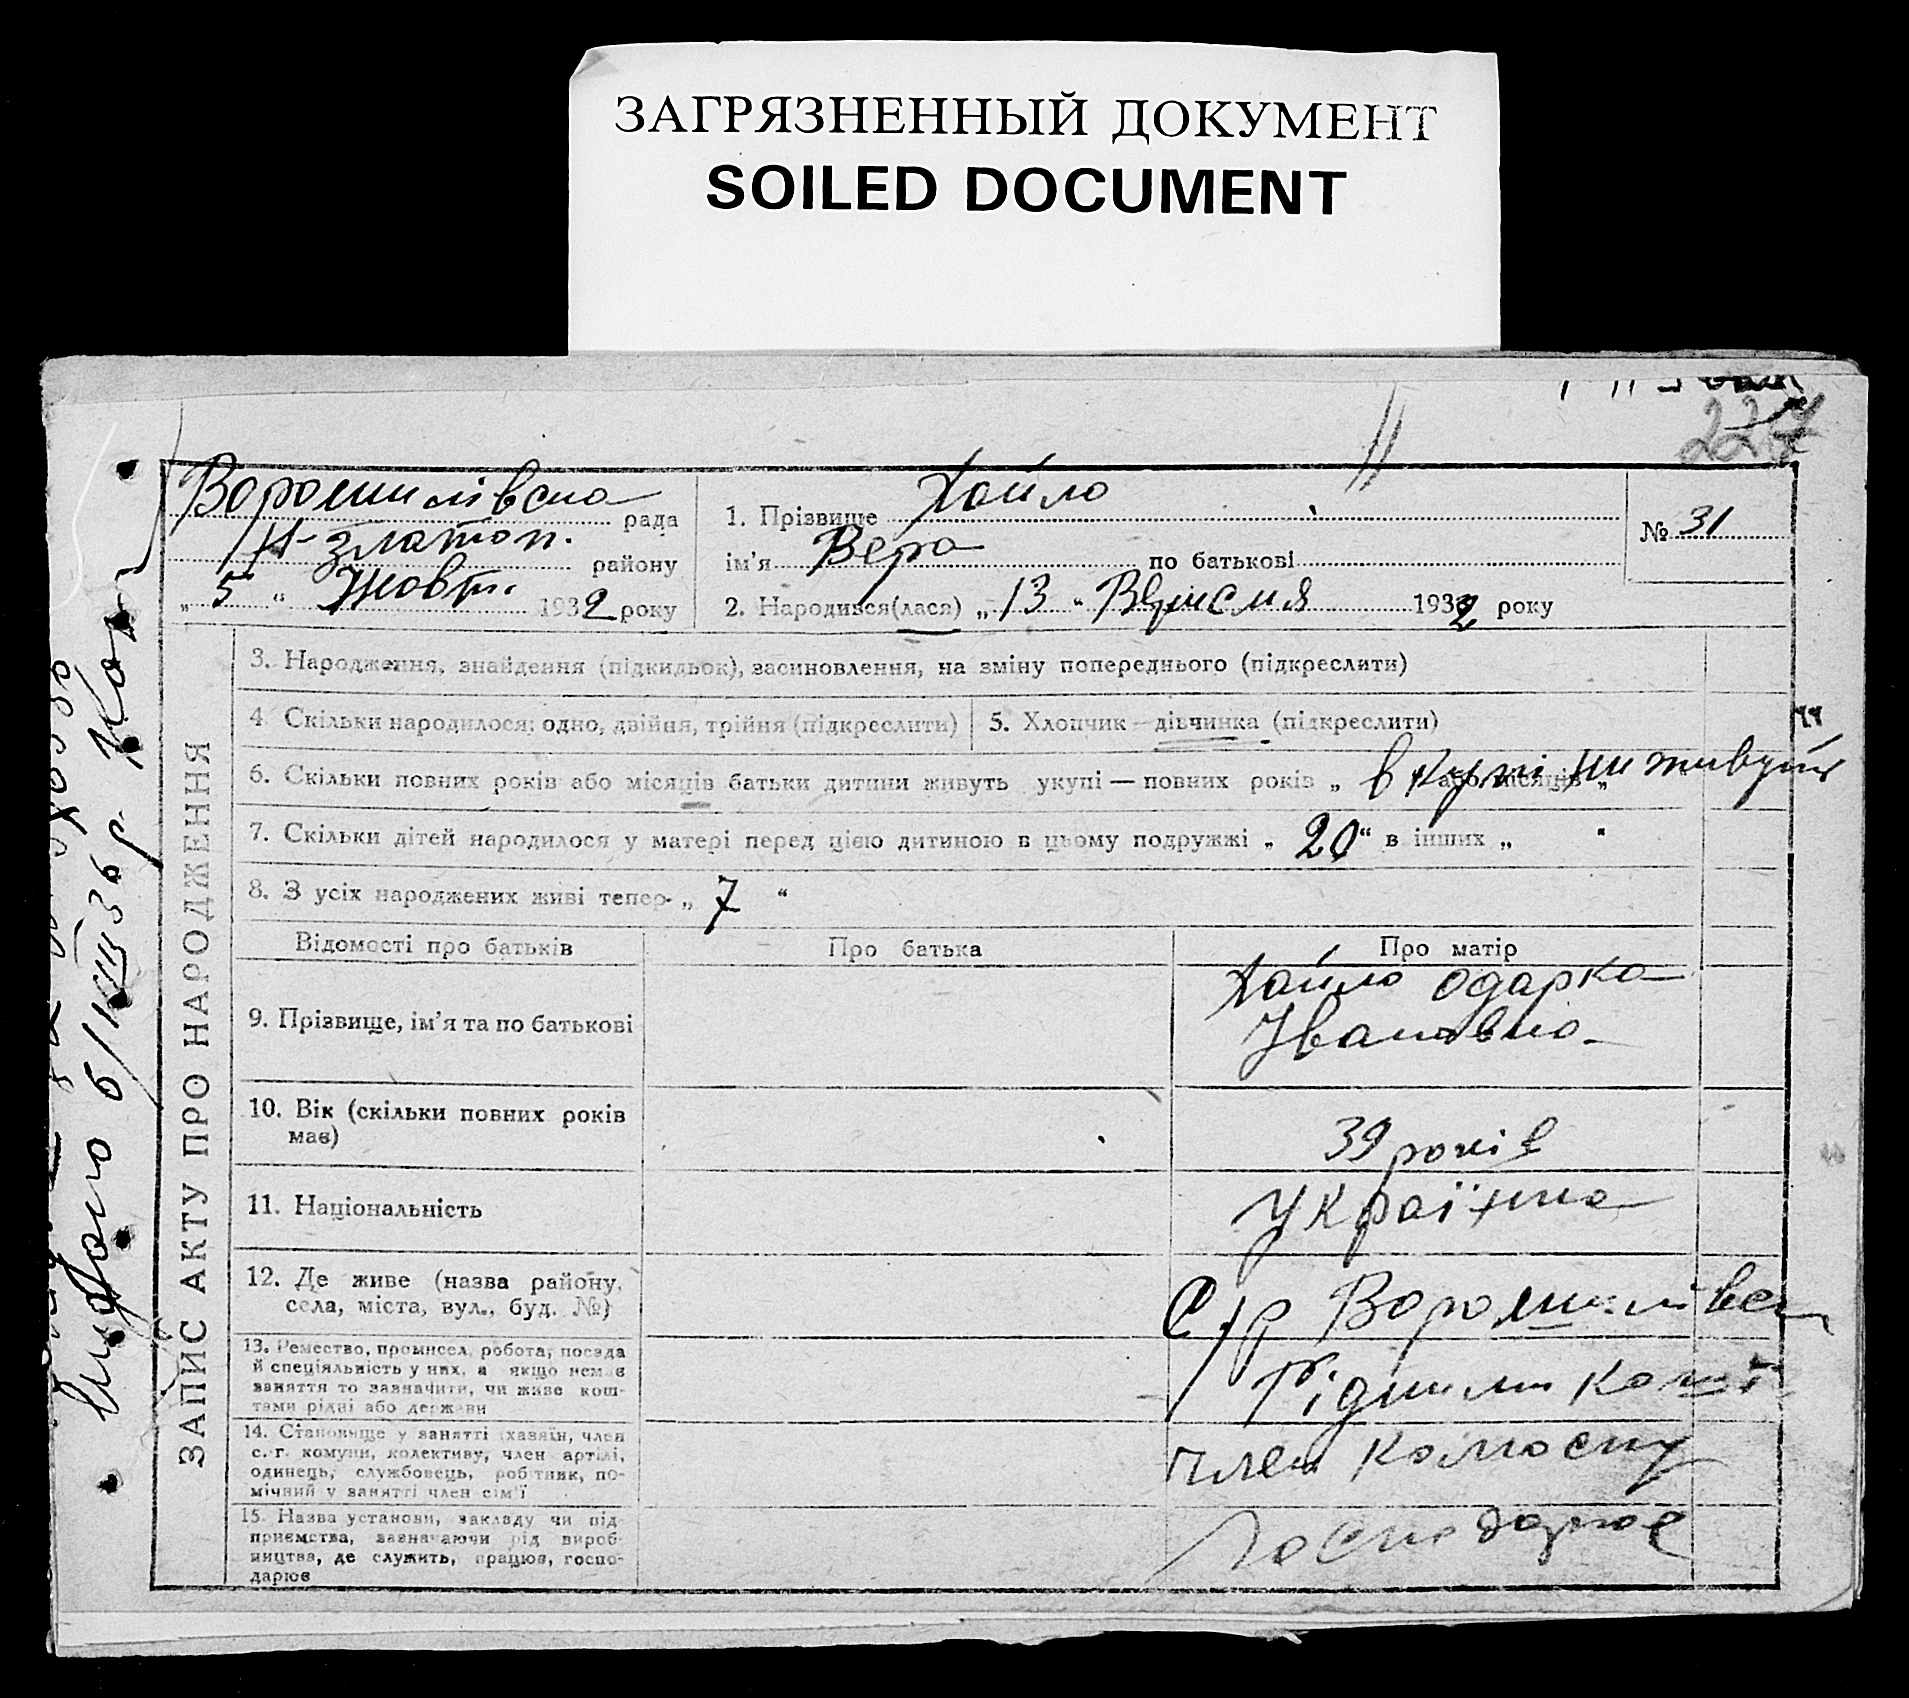 ЗАГРЯЗНЕННЫЙ ДОКУМЕНТ
SOILED DOCUMENT
227
Ворошилівська рада
Н-златоп. району
„ 5 “ Жовт. 1932 року
1. Прізвище Хайло
№ 31
ім'я Вера по батькові
2. Народився(лася) „ 13 “ Вересня 1932 року
ЗАПИС АКТУ ПРО НАРОДЖЕННЯ
3. Народження, знайдення (підкидьок), засиновлення, на зміну попереднього (підкреслити)
4. Скільки народилося; одно, двійня, трійня (підкреслити)
5. Хлопчик — дівчинка (підкреслити)
6. Скільки повних років або місяців батьки дитини живуть укупі — повних років „ в купі ни живуть або місяців „
7. Скільки дітей народилося у матері перед цією дитиною в цьому подружжі „ 20 “ в інших „ “
8. З усіх народжених живі тепер „ 7 “
Відомості про батьків
Про батька
Про матір
9. Прізвище, ім'я та по батькові
Хайло Одарка
Івановна
10. Вік (скільки повних років
має)
39 років
11. Національність
Українка
12. Де живе (назва району,
села, міста, вул., буд. №)
С/р Ворошилівск
13. Ремество, промисел, робота, посада
й спеціяльність у них, а якщо немає
заняття то зазначити, чи живе кош-
тами рідні або держави
Рідними кошт
14. Становище у занятті (хазяїн, член
с.-г. комуни, колективу, член артілі,
одинець, службовець, робітник, по-
мічний у занятті член сім'ї
член колгоспу
15. Назва установи, закладу чи під-
приємства, зазначаючи рід вироб-
ництва, де служить, працює, госпо-
дарює
господарює